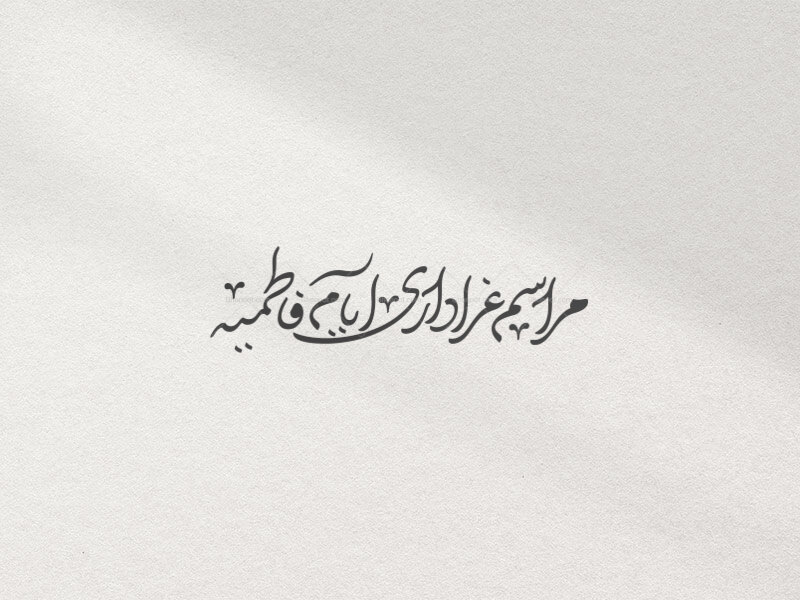 مراسم عزاداری ایام فاطمیه